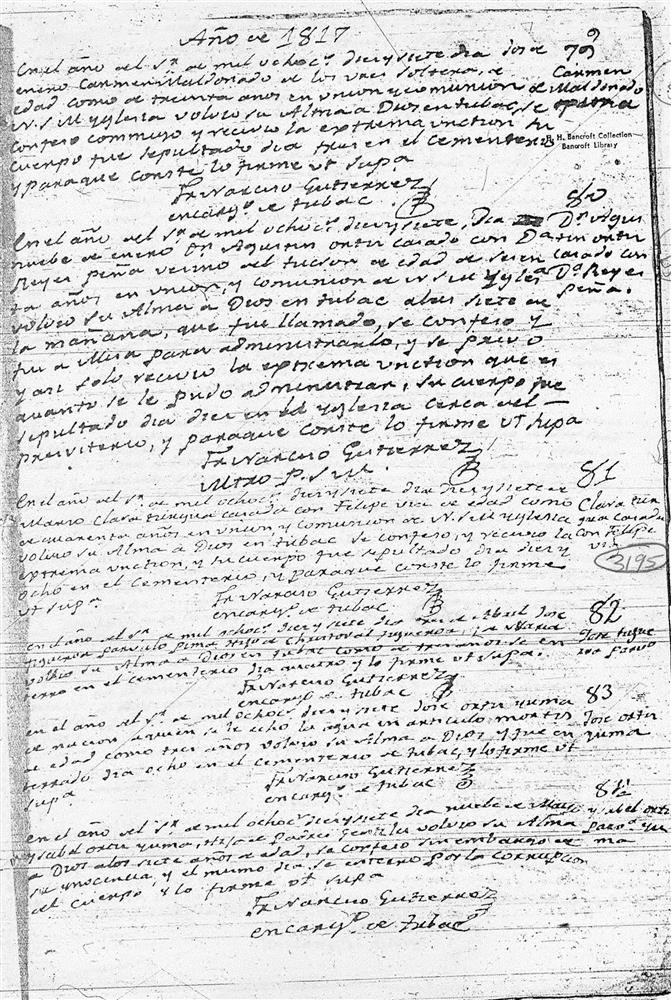 Año de 1817
En el año del Sr. de mil ochoc.s diez y siete dia dos de
enero Carmen Maldonado de los vres soltera, de
edad como de treinta anos en union y comunion de
N. S. M. Yglesia volvio su Alma a Dios en tubac, se
confeso commugo y recivio la extrema unction su
cuerpo fue sepultado dia tres en el cementerio
y paraque conste lo firme ut supa.
Fr Narciso Gutierrez
encarg.o de tubac.
79
Carmen
Maldonado
H. H. Bancroft Collection
Bancroft Library
En el año del Sr. de mil ochoc.s diez y siete, Dia
nuebe de enero Dn. Agustin ortiz casado con Da.
Reyes Peña vecino del tucson de edad de
ta años en union, y comunion de N. S. M. Ygle
volvio su Alma a Dios en tubac alas siete de
la mañana, que fue llamado, se confeso y
fui a Misa para administrarlo, y se privo
y asi solo recivio la extrema unction que es
quanto se le pudo administrar, su cuerpo fue
sepultado dia diez en la yglesia cerca del
previterio, y paraque conste lo firme ut supa
Fr Narciso Gutierrez
Mtro P. S. M.
80
Dn. Agus
tin ortiz
casado con
Da. Reyes
Peña.
En el año del Sr. de mil ochoc.s diez y siete dia diez y siete de
Marzo Clara casada con Felipe de edad como
de quarenta años en union y comunion de N. S. M Yglesia
volvio su Alma a Dios en tubac se confeso, y recivio la
extrema unction, y su cuerpo fue sepultado dia diez y
ocho en el Cementerio, y paraque conste lo firme
ut sup.a
Fr Narciso Gutierrez
encarg.o de tubac.
81
Clara
casada
con Felipe
3195
en el año del Sr. de mil ochoc.s diez y siete dia tres de Abril Jose
figueroa parvulo Pima Hijo de Christoval figueroa, y de Maria
volvio su Alma a Dios en tubac como de tres años se en
terro en el cementerio dia quatro y lo firme ut supa.
Fr Narciso Gutierrez
encarg.o de tubac
82
Jose figue
roa parvo
en el año del Sr. de mil ochoc.s diez y siete Jose ortiz yuma
de nacion aquien se le echo la agua in articulo mortis
de edad como tres años volvio su Alma a Dios y fue en
terrado dia ocho en el cementerio de tubac, y lo firme ut
supa
Fr Narciso Gutierrez
encarg.o de tubac
83
Jose ortiz
yuma
en el año del Sr. de mil ochoc.s diez y siete dia nuebe de Mayo
Ysabel ortiz yuma, Hija de Padres Gentiles volvio su Alma
a Dios alos siete años de edad, se confeso sin embargo de
su ynocencia, y el mismo dia se enterro por la corrupcion
del cuerpo y lo firme ut supa
Fr Narciso Gutierrez
encarg.o de tubac
84
Ysabel orti
parv.a yu
ma